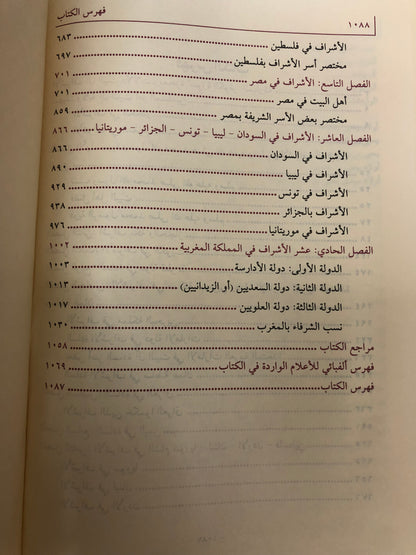 ١٠٨٨ فهرس الكتاب
الأشراف في فلسطين ٦٨٣
مختصر أسر الأشراف بفلسطين ٦٩٧
الفصل التاسع: الأشراف في مصر ٧٠١
أهل البيت في مصر ٧٠١
مختصر بعض الأسر الشريفة بمصر ٨٥٩
الفصل العاشر: الأشراف في السودان - ليبيا - تونس - الجزائر - موريتانيا ٨٦٦
الأشراف في السودان ٨٦٦
الأشراف في ليبيا ٨٩٠
الأشراف في تونس ٩٢٩
الأشراف بالجزائر ٩٣٨
الأشراف في موريتانيا ٩٧٦
الفصل الحادي: عشر الأشراف في المملكة المغربية ١٠٠٢
الدولة الأولى: دولة الأدارسة ١٠٠٣
الدولة الثانية: دولة السعديين (أو الزيدانيين) ١٠١٣
الدولة الثالثة: دولة العلويين ١٠١٧
نسب الشرفاء بالمغرب ١٠٣٠
مراجع الكتاب ١٠٥٨
فهرس ألفبائي للأعلام الواردة في الكتاب ١٠٦٩
فهرس الكتاب ١٠٨٧